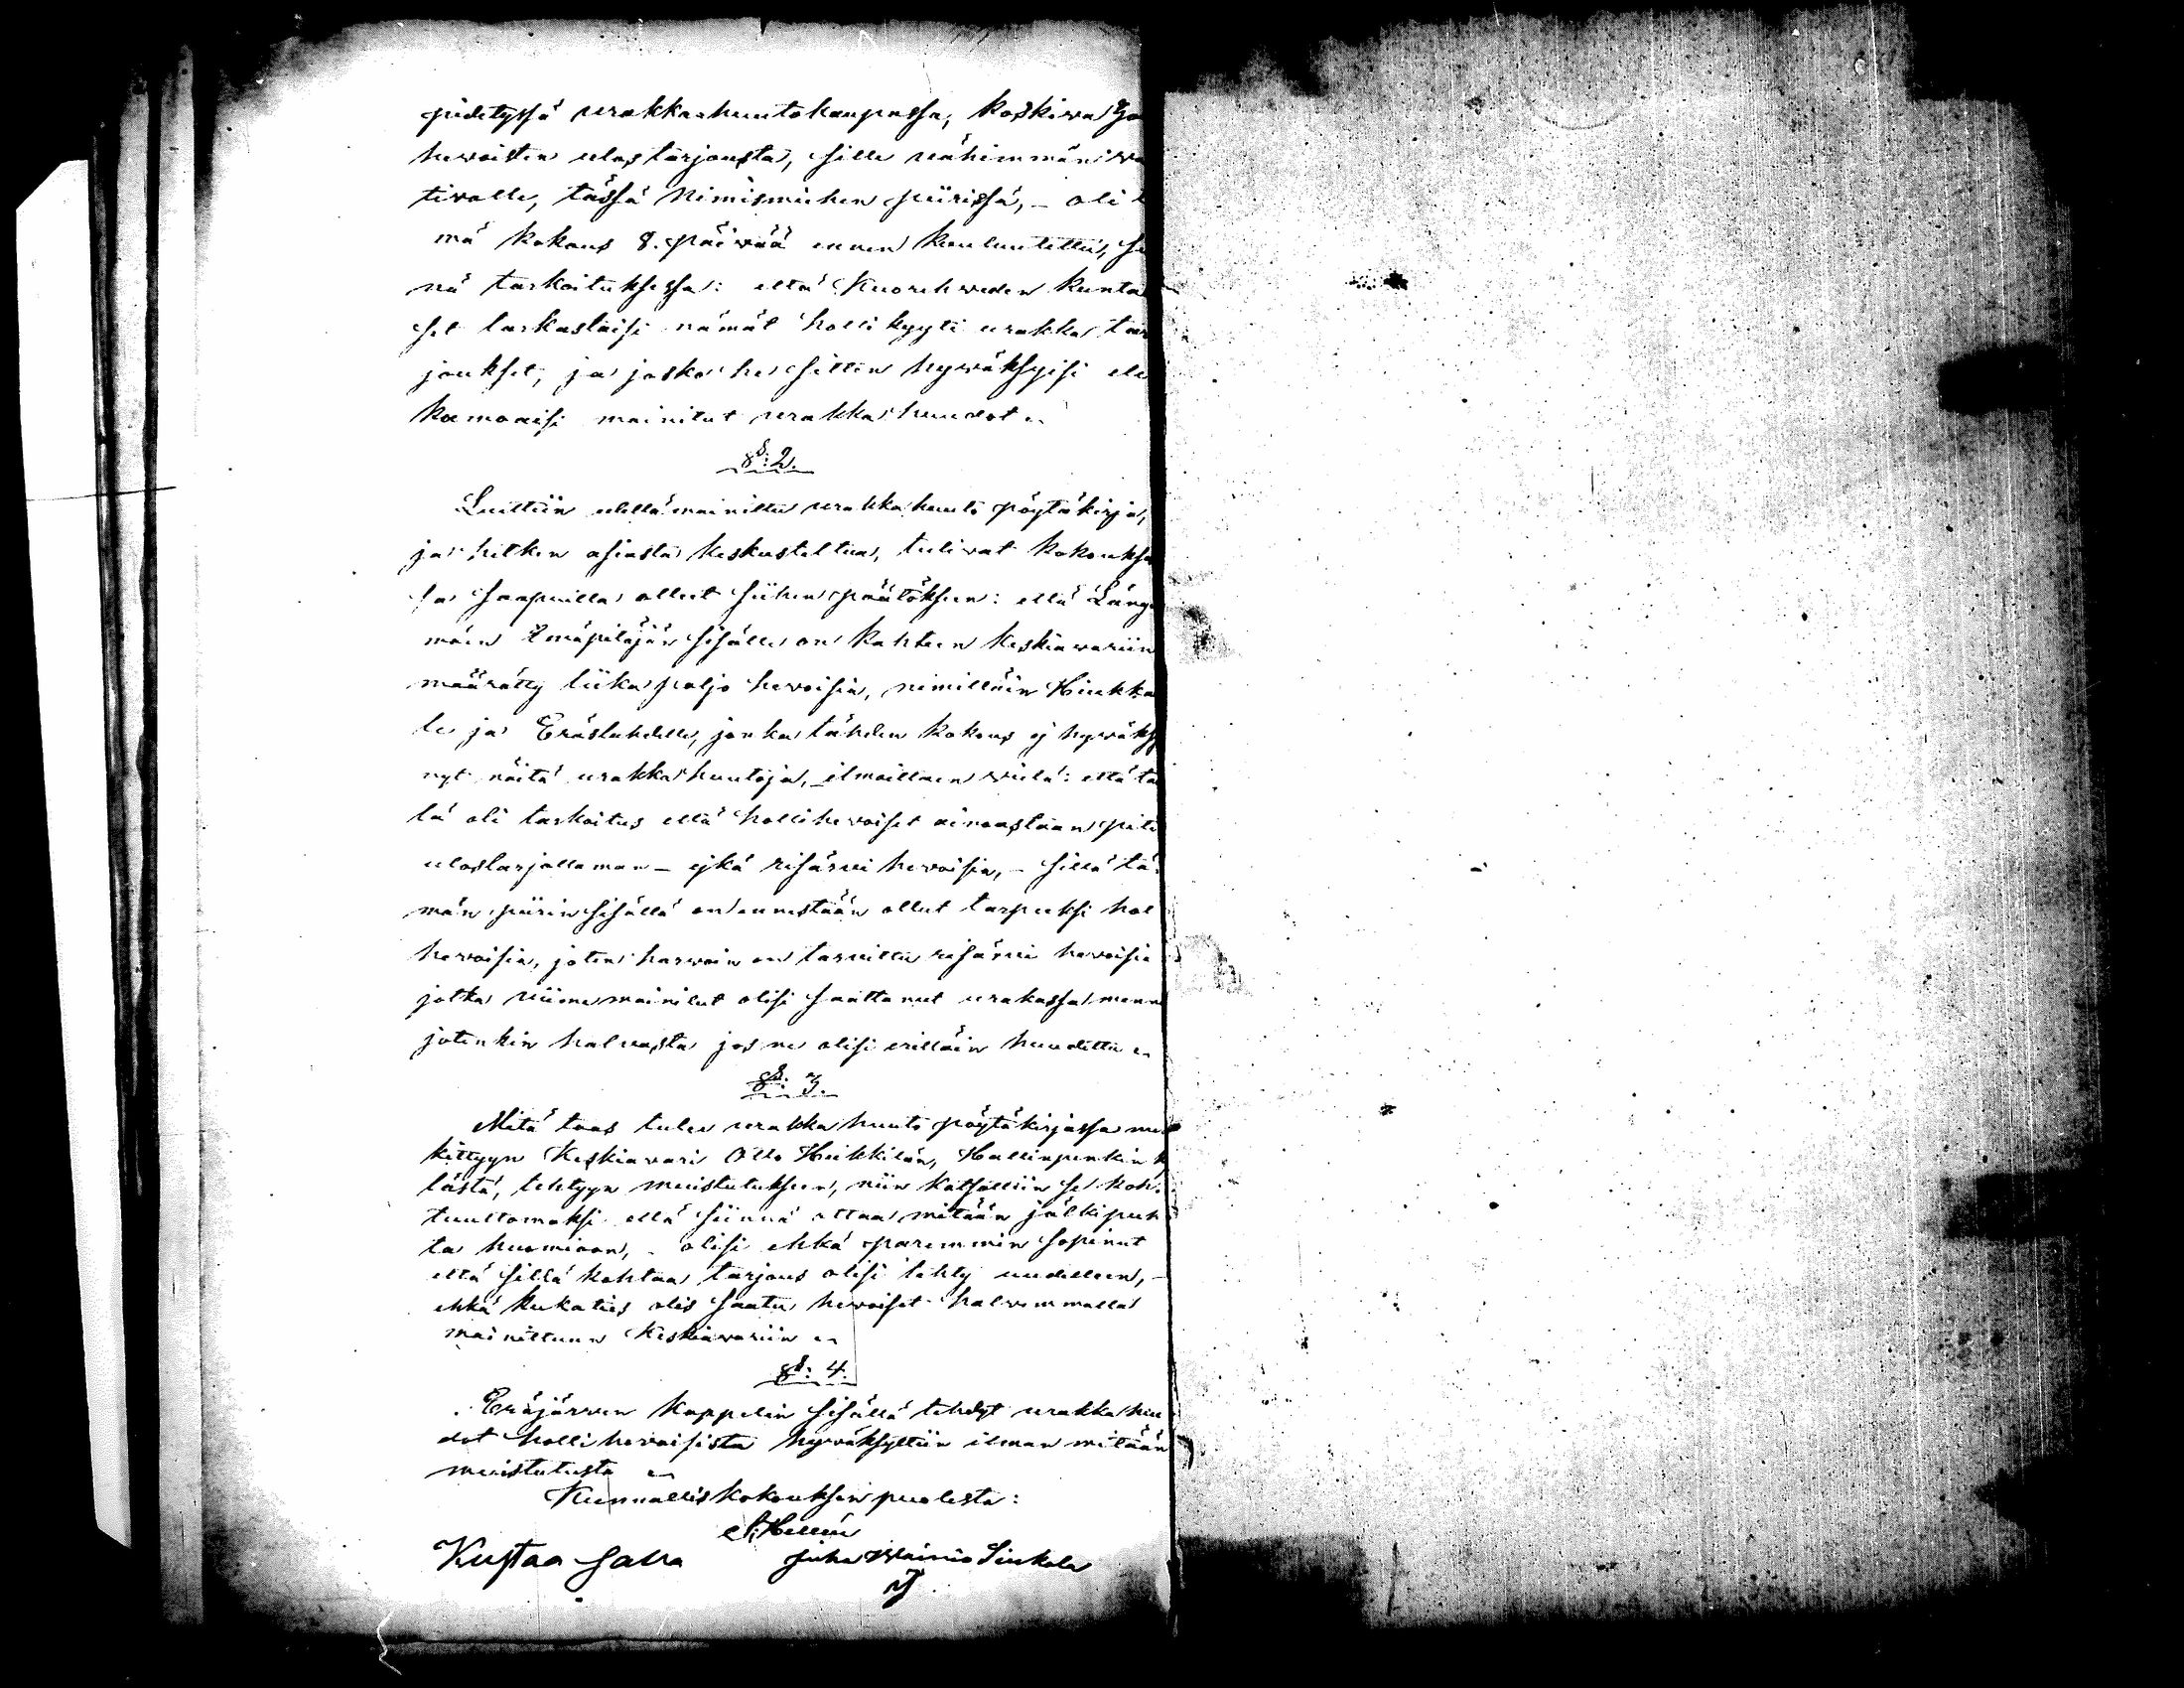 pidetyssä urakkahuutokaupassa, koskewa
hewoisten ulos tarjousta, sille vähimmän
tivalle, tässä Nimismiehen piirissä, – oli
mä kokous 8. päiwää ennen kuuluutettu,
nä tarkoituksessa: että Kuorehweden kunta
set tarkastaisi nämät hollikyyti urakka tar
joukset, ja josko he sitten hywäksyisi eli
kamoaisi mainitut urakka huudot
§: 2.
Luettiin edellä mainittu urakka huuto pöytäkirja,
ja hetken asiasta keskusteltua, tulivat kokoukse
sa saapuilla olleet siihen päätökseen: että Länge
mäen Emäpitäjän sisälle on kahteen keskiewariin
määrätty liika paljo hewoisia, nimittäin Hiukka
le ja Eräslahdelle, jonka tähden kokous ej hywäksy
nyt näitä urakka huutoja, ilmoittaen wielä: että tä
lä oli tarkoitus että hollihewoiset ainoastaan piti
ulostarjottaman – ejkä risärwi hewoisia, – sillä tä
män piirin sisällä on ennestään ollut tarpeeksi hol
hewoisia, joten harwoin on tarvittu risärwi hewoisia
jotka viime mainitut olisi saattanut urakassa menn
jotenkin halwasta jos ne olisi erillään huudittu
§: 3.
Mitä taas tulee urakka huuto pöytäkirjassa mer
kittyyn Keskiewari Otto Heikkilän, Hallinpenkin k
lästä, tehtyyn muistutukseen, niin katsottiin se koh
tuuttomaksi että siinnä ottaa mitään jälkipuh
ta huomioon, – olisi ehkä paremmin sopinut
että sillä kohtaa tarjous olisi tehty uudelleen, –
ehkä kukaties olis saatu hewoiset halwemmalla
mainittuun Keskiewariin
§: 4.
Eräjärwen kappelin sisällä tehdyt urakka huu
dot holli hewoisista hywäksyttiin ilman mitään
muistutusta
Kunnalliskokouksen puolesta:
Hellén
Kustaa Salla Juha Wainio Sinkala